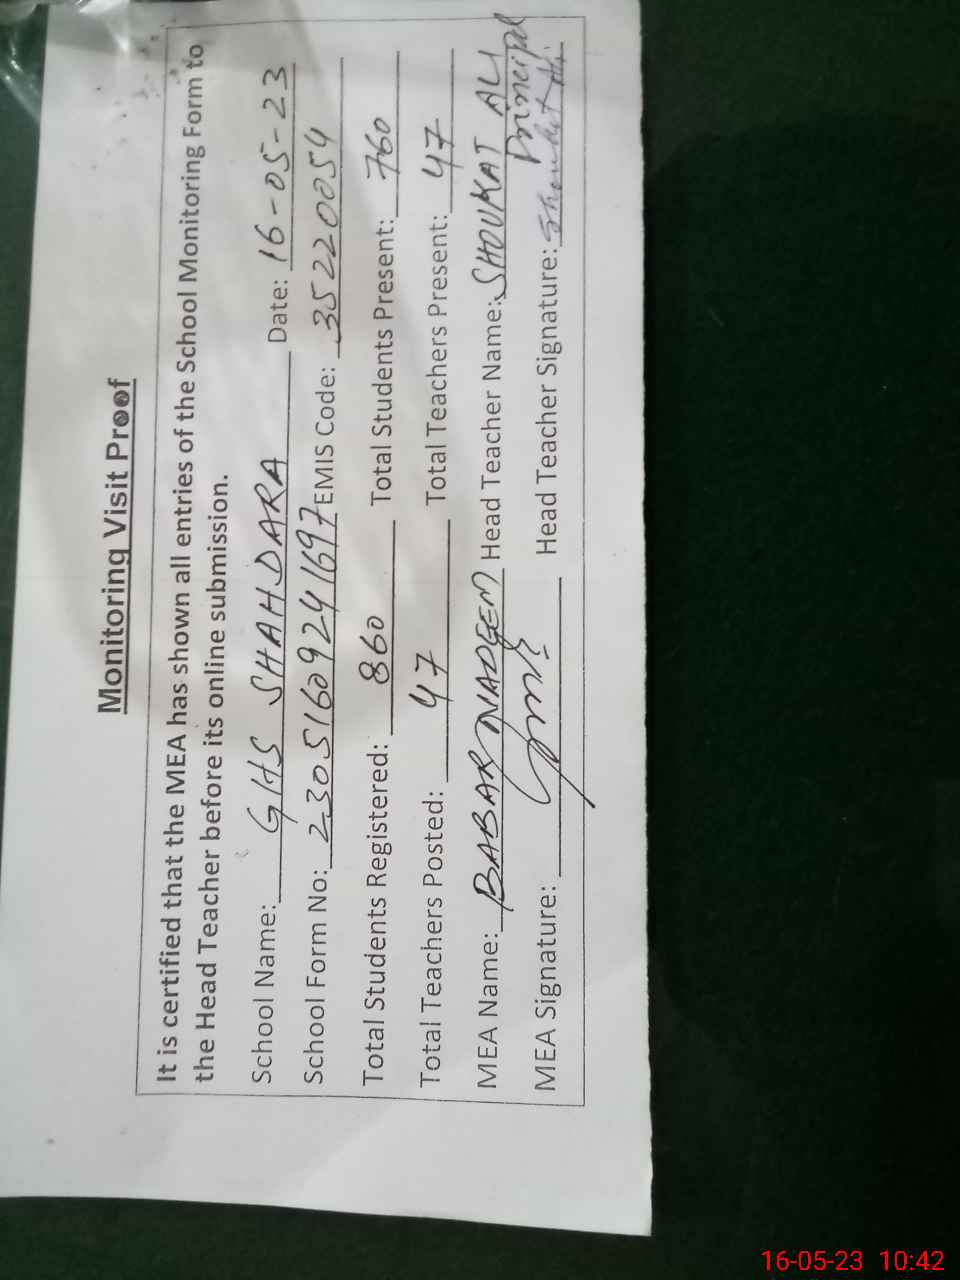 Monitoring Visit Proof
It is certified that the MEA has shown all entries of the School Monitoring Form to
the Head Teacher before its online submission.
School Name: GHS SHAHDARA Date: 16-05-23
School Form No: 23051609241697 EMIS Code: 35220054
Total Students Registered: 860 Total Students Present: 760
Total Teachers Posted: 47 Total Teachers Present: 47
MEA Name: BABAR NADEEM Head Teacher Name: SHOUKAT ALI
Principal
MEA Signature: Head Teacher Signature: Shoukat Ali
16-05-23 10:42